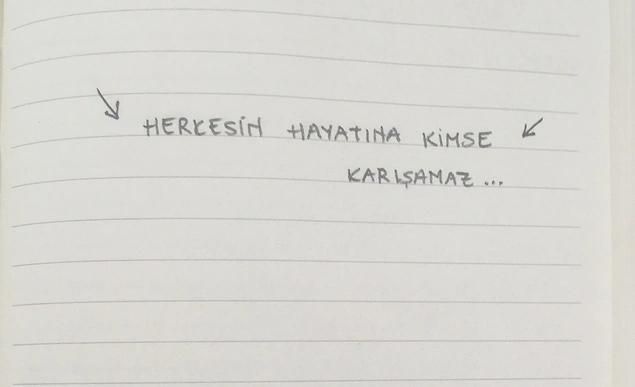 HERKESİN HAYATINA KİMSE
KARIŞAMAZ...